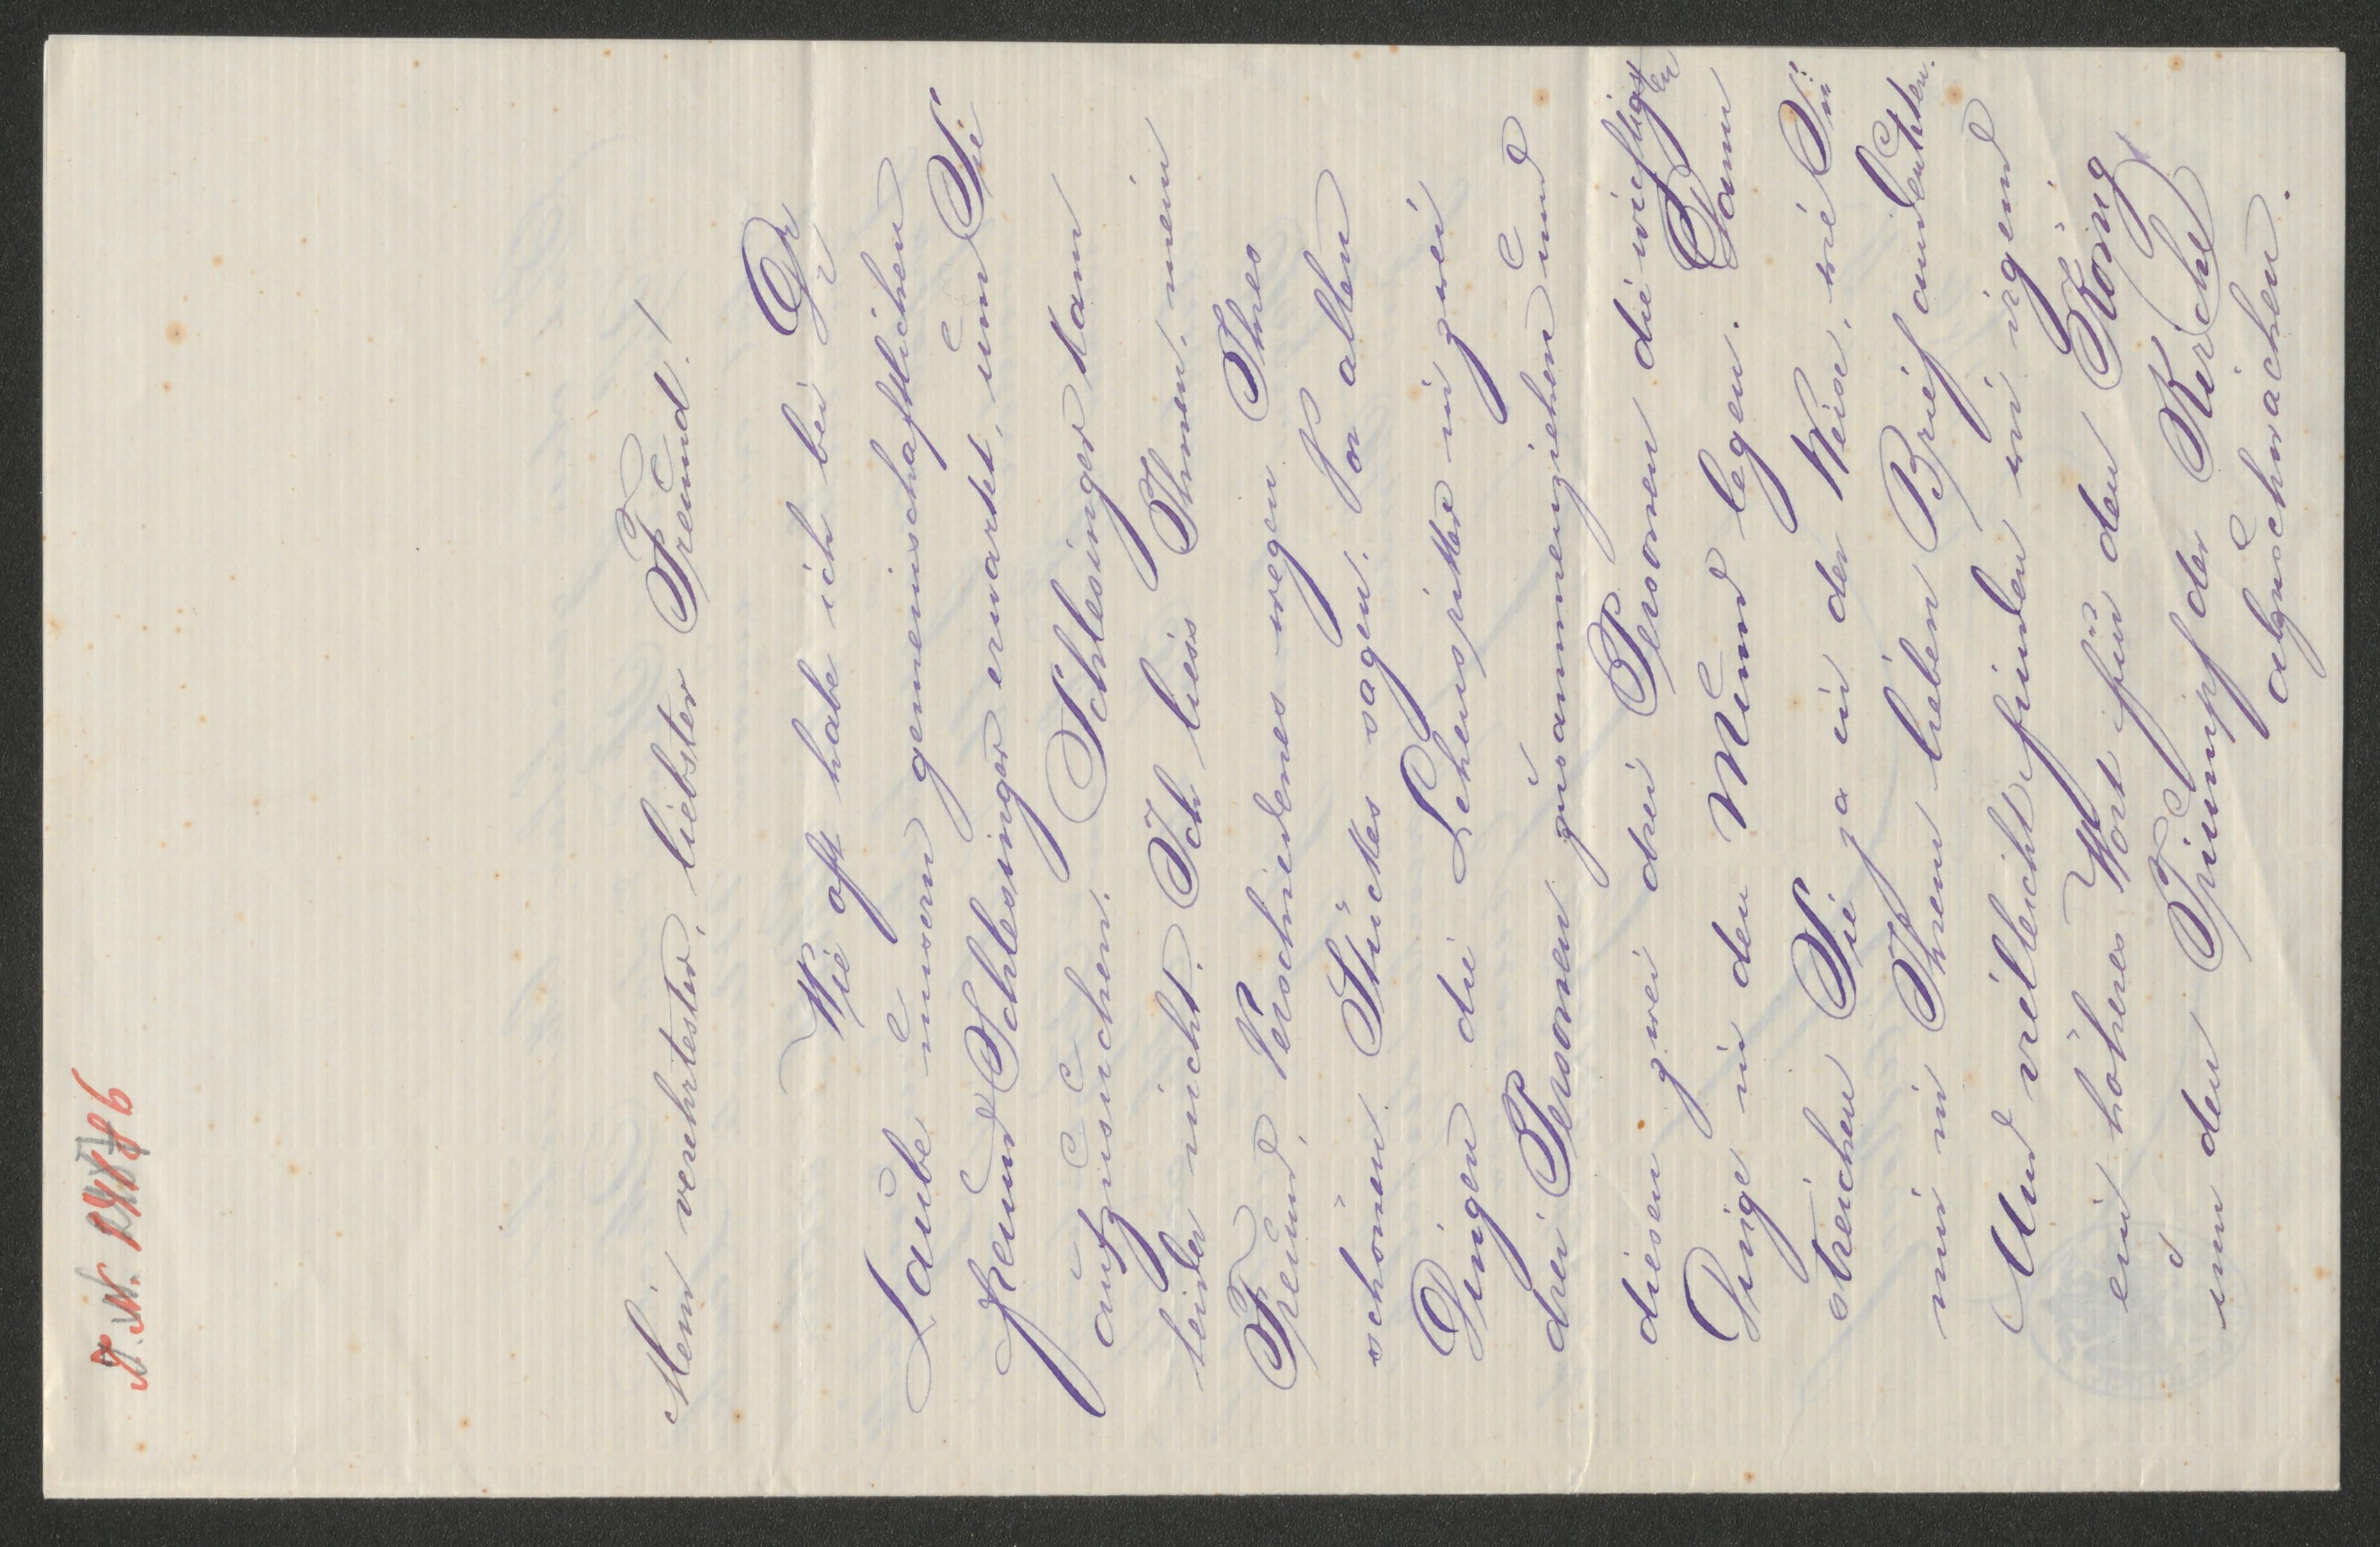 Mein verehrtester, liebster Freund!
Wie oft habe ich bei Dr
Laube unsern gemeinschaftlichen
Freund Schlesinger erwartet, um Sie
aufzusuchen. Schlesinger kam
leider nicht. Ich liess Ihnen, mein
Freund, Verschiedenes wegen Ihres
schönen Stückes sagen. Vor allen
Dingen die Lehusritter in zwei
drei Personen zusammenziehen und
diesen zwei drei Personen die wichtigsten
Dinge in den Mund legen. Dann
streichen Sie ja in der Weise, wie Sie
mir in Ihrem lieben Brief andeuteten.
Und vielleicht finden wir irgend
ein höheres Wort für den König
um den Triumpf der Kirche
abzuschwächen.